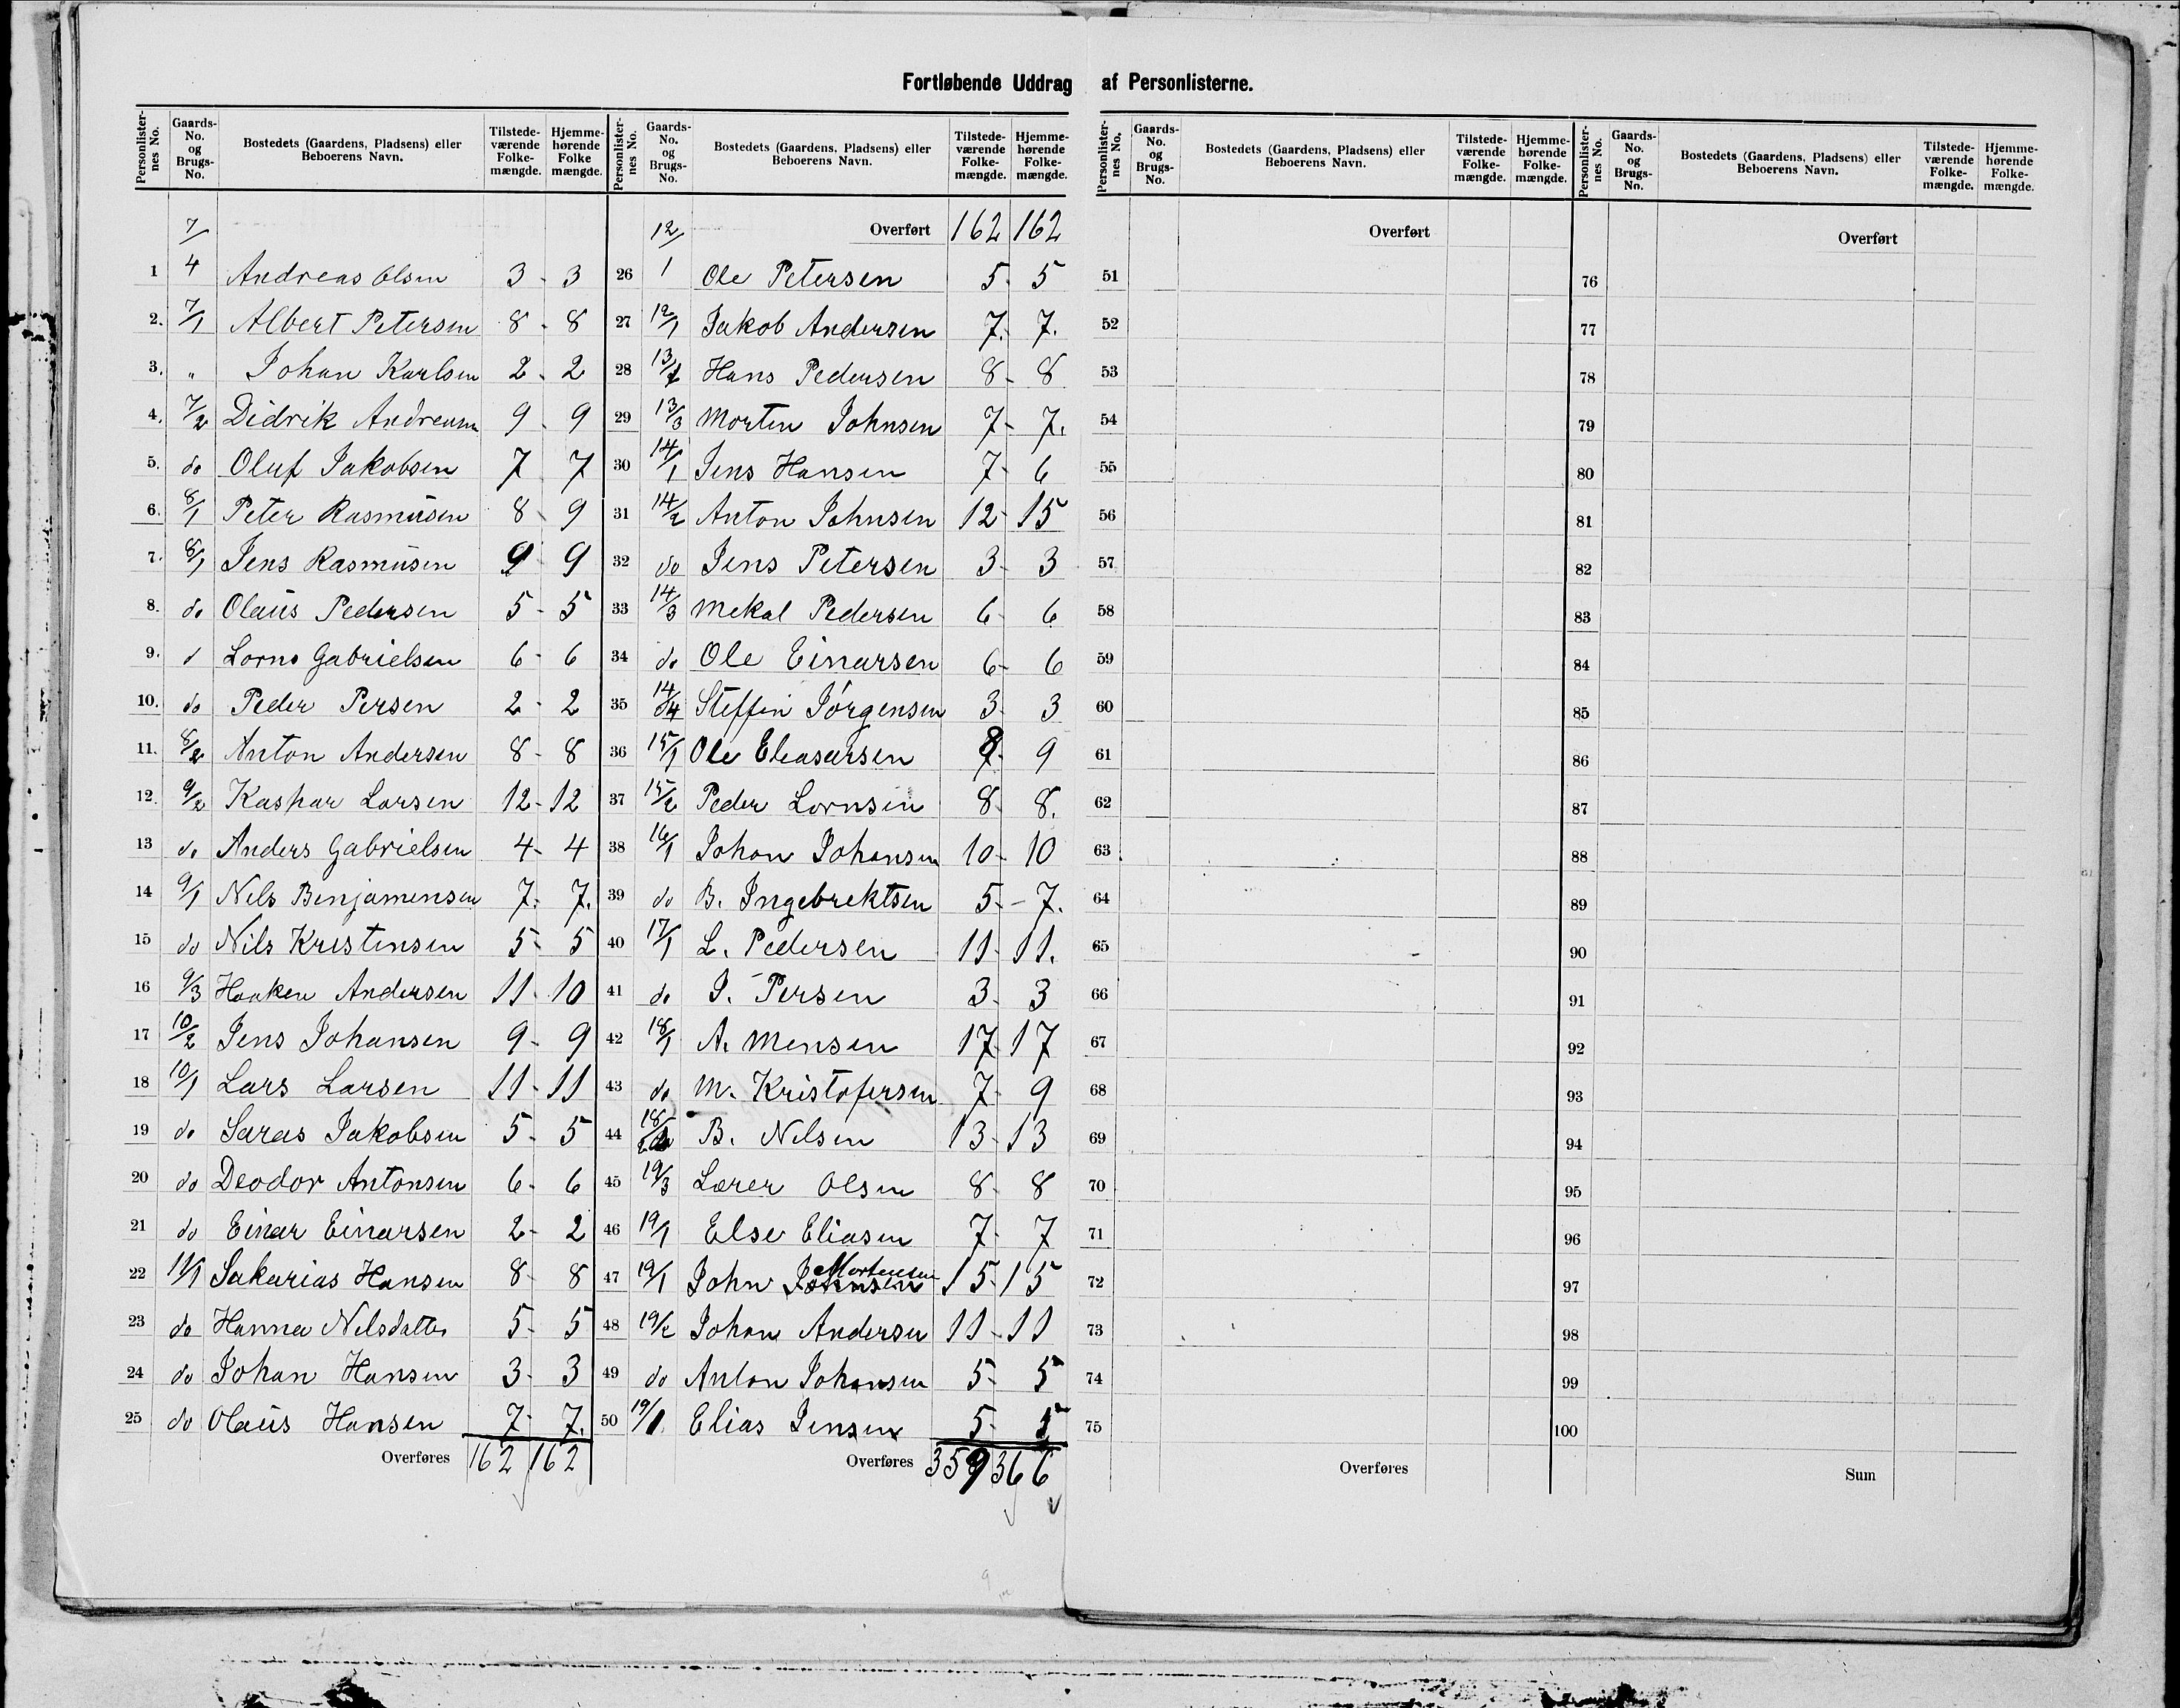 Fortløbende Uddrag af Personlisterne.
Personlister-nes No. Gaards-No. og Brugs-No. Bostedets (Gaardens, Pladsens) eller Beboerens Navn. Tilstede-værende Folke-mængde. Hjemme-hørende Folke mængde.
1 7/4 Andreas Olsen 3 - 3
2. 7/1 Albert Petersen 8 - 8
3. " Johan Karlsen 2 - 2
4. 7/2 Didrik Andreasen 9 - 9
5. do Oluf Jakobsen 7 7
6. 8/1 Peter Rasmüsen 8 - 9
7. 8/1 Jens Rasmüsen 9 9
8. do Olaüs Pedersen 5 - 5
9. d Lorns Gabrielsen 6 - 6
10. do Peder Persen 2 - 2
11. 8/2 Anton Andersen 8 - 8
12. 9/2 Kaspar Larsen 12 - 12
13 do Anders Gabrielsen 4 - 4
14 9/1 Nils Benjamensen 7. 7.
15 do Nils Kristensen 5 - 5
16 9/3 Haaken Andersen 11 - 10
17 10/2 Jens Johansen 9 - 9
18 10/1 Lars Larsen 11 - 11
19 do Saras Jakobsen 5 - 5
20 do Deodor Antonsen 6 - 6
21 do Einar Einarsen 2 - 2
22 11/1 Sakarias Hansen 8 - 8
23 do Hanna Nilsdatter 5 - 5
24 do Johan Hansen 3 - 3
25 do Olaüs Hansen 7 - 7.
Overføres 162 162
Personlister-nes No. Gaards-No. og Brugs-No. Bostedets (Gaardens, Pladsens) eller Beboerens Navn. Tilstede-værende Folke-mængde. Hjemme-hørende Folke-mængde.
Overført 162 162
26 12/1 Ole Petersen 5 - 5
27 12/1 Jakob Andersen 7. 7.
28 13/1 Hans Pedersen 8 - 8
29 13/3 Morten Johnsen 7 - 7.
30 14/1 Jens Hansen 7 - 6
31 14/2 Anton Johnsen 12 - 15
32 do Jens Petersen 3 - 3
33 14/3 Mekal Pedersen 6 - 6
34 do Ole Einarsen 6 - 6
35 14/4 Steffen Jørgensen 3 - 3
36 15/1 Ole Eleasarsen 8 - 9
37 15/2 Peder Lornsen 8 - 8.
38 16/1 Johan Johansen 10 - 10
39 do B. Ingebrektsen 5 - 7.
40 17/1 L. Pedersen 11 - 11.
41 do J. Persen 3 - 3
42 18/1 A. Mensen 17 - 17
43 do M. Kristofersen 7 - 9
44 18/2 B. Nilsen 13 - 13
45 19/3 Lærer Olsen 8 - 8
46 19/1 Else Eliasen 7 - 7
47 19/1 John Johnsen Mortensen 15 - 15
48 19/2 Johan Andersen 11 - 11
49 do Anton Johansen 5 - 5
50 19/1 Elias Jensen 5 - 5
Overføres 359 366
Personlister-nes No. Gaards-No. og Brugs-No. Bostedets (Gaardens, Pladsens) eller Beboerens Navn. Tilstede-værende Folke-mængde. Hjemme-hørende Folke-mængde.
Overført
51
52
53
54
55
56
57
58
59
60
61
62
63
64
65
66
67
68
69
70
71
72
73
74
75
Overføres
Personlister-nes No. Gaards-No. og Brugs-No. Bostedets (Gaardens, Pladsens) eller Beboerens Navn. Tilstede-værende Folke-mængde. Hjemme-hørende Folke-mængde.
Overført
76
77
78
79
80
81
82
83
84
85
86
87
88
89
90
91
92
93
94
95
96
97
98
99
100
Sum